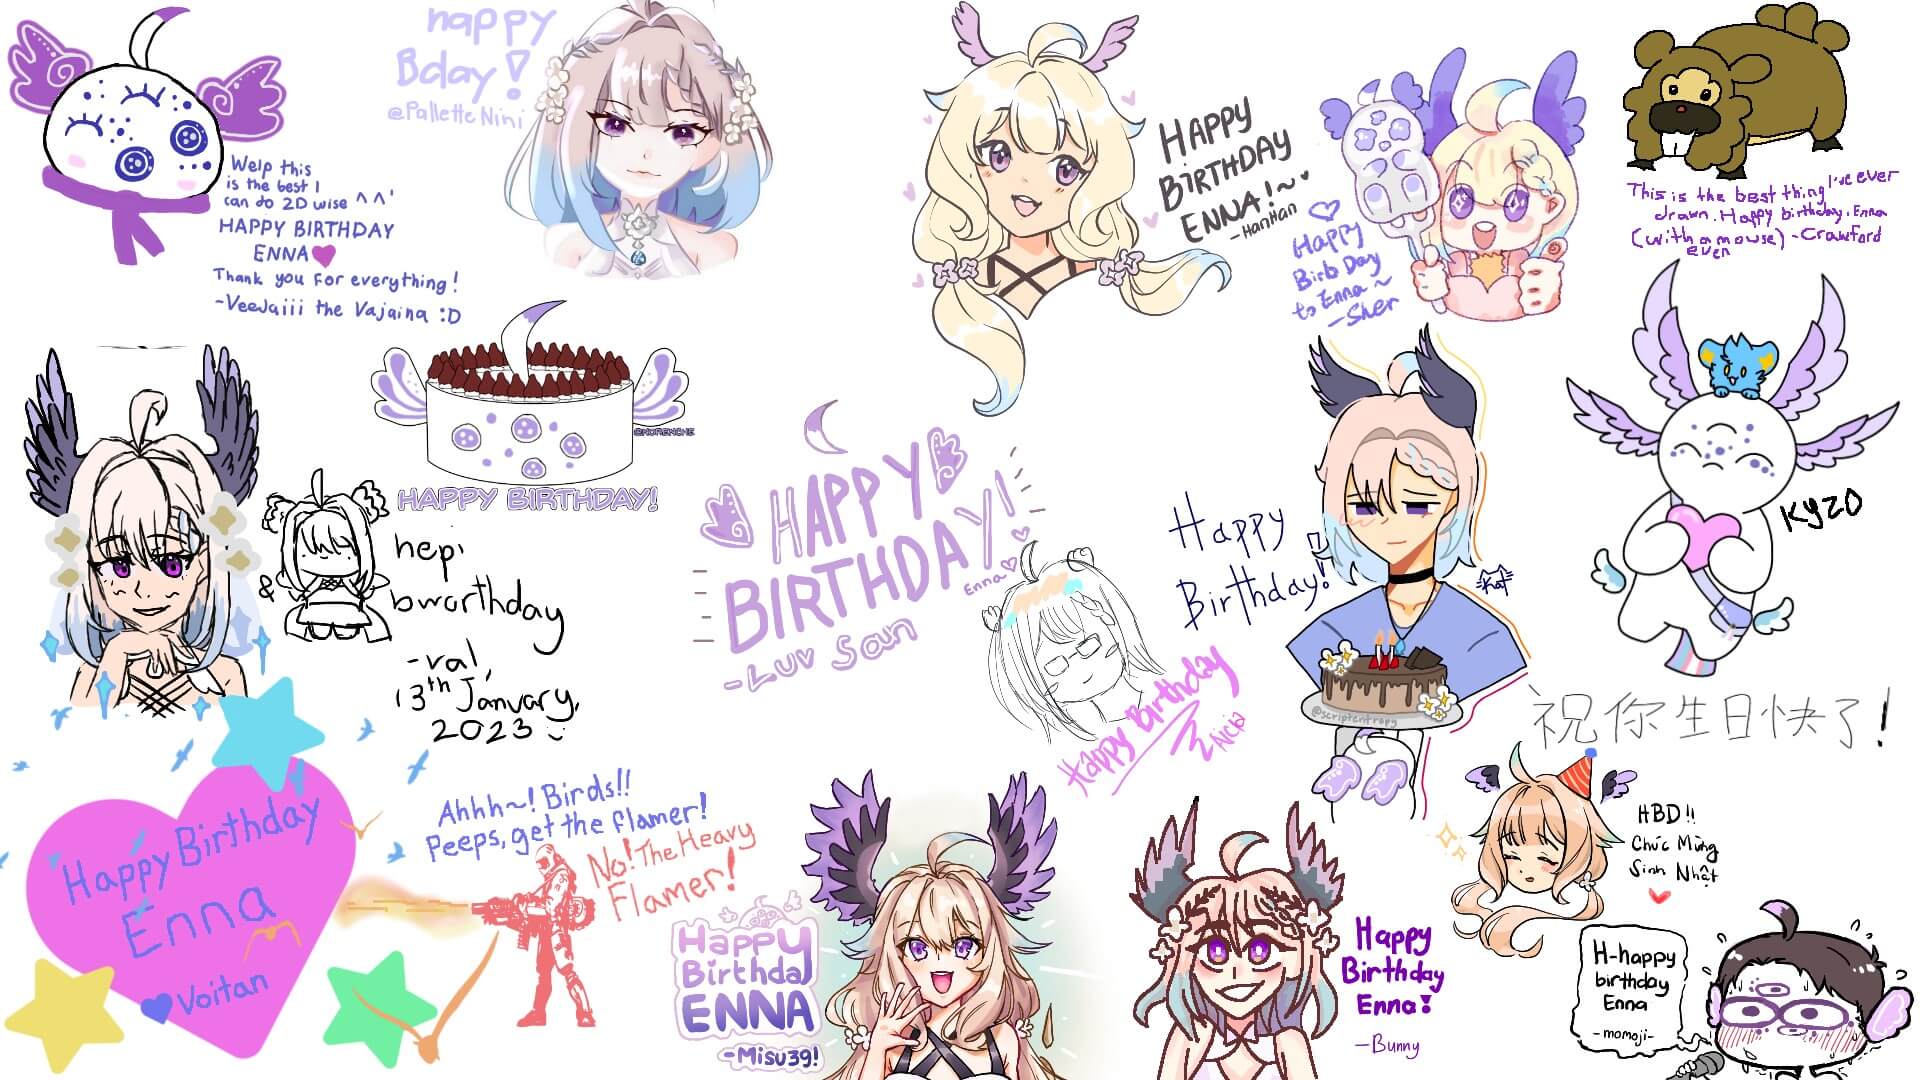 Welp this
is the best I
can do 2D wise ^ ^'
HAPPY BIRTHDAY
ENNA
Thank you For everything!
-VeeJaiii the Vajaina :D
happy
Bday!
@PalletteNini
HAPPY
BIRTHDAY
ENNA!~
-HanHan
Happy
Birb Day
to Enna~
-Sher
This is the best thing I've ever
drawn. Happy birthday, Enna
(with a mouse) -Crawford
even
@MORENCHE
HAPPY BIRTHDAY!
&
hepi
bworthday
-val,
13th January,
2023
HAPPY
BIRTHDAY!
Enna
-Luv San
Happy Birthday
Happy
Birthday!
Kat
@scriptentropy
KYZO
祝你生日快了!
Happy Birthday
Enna
Voitan
Ahhh~! Birds!!
Peeps, get the flamer!
No! The Heavy
Flamer!
Happy
Birthday
ENNA
-Misu39!
Happy
Birthday
Enna!
-Bunny
HBD!!
Chúc Mừng
Sinh Nhật
H-happy
birthday
Enna
-momoji-